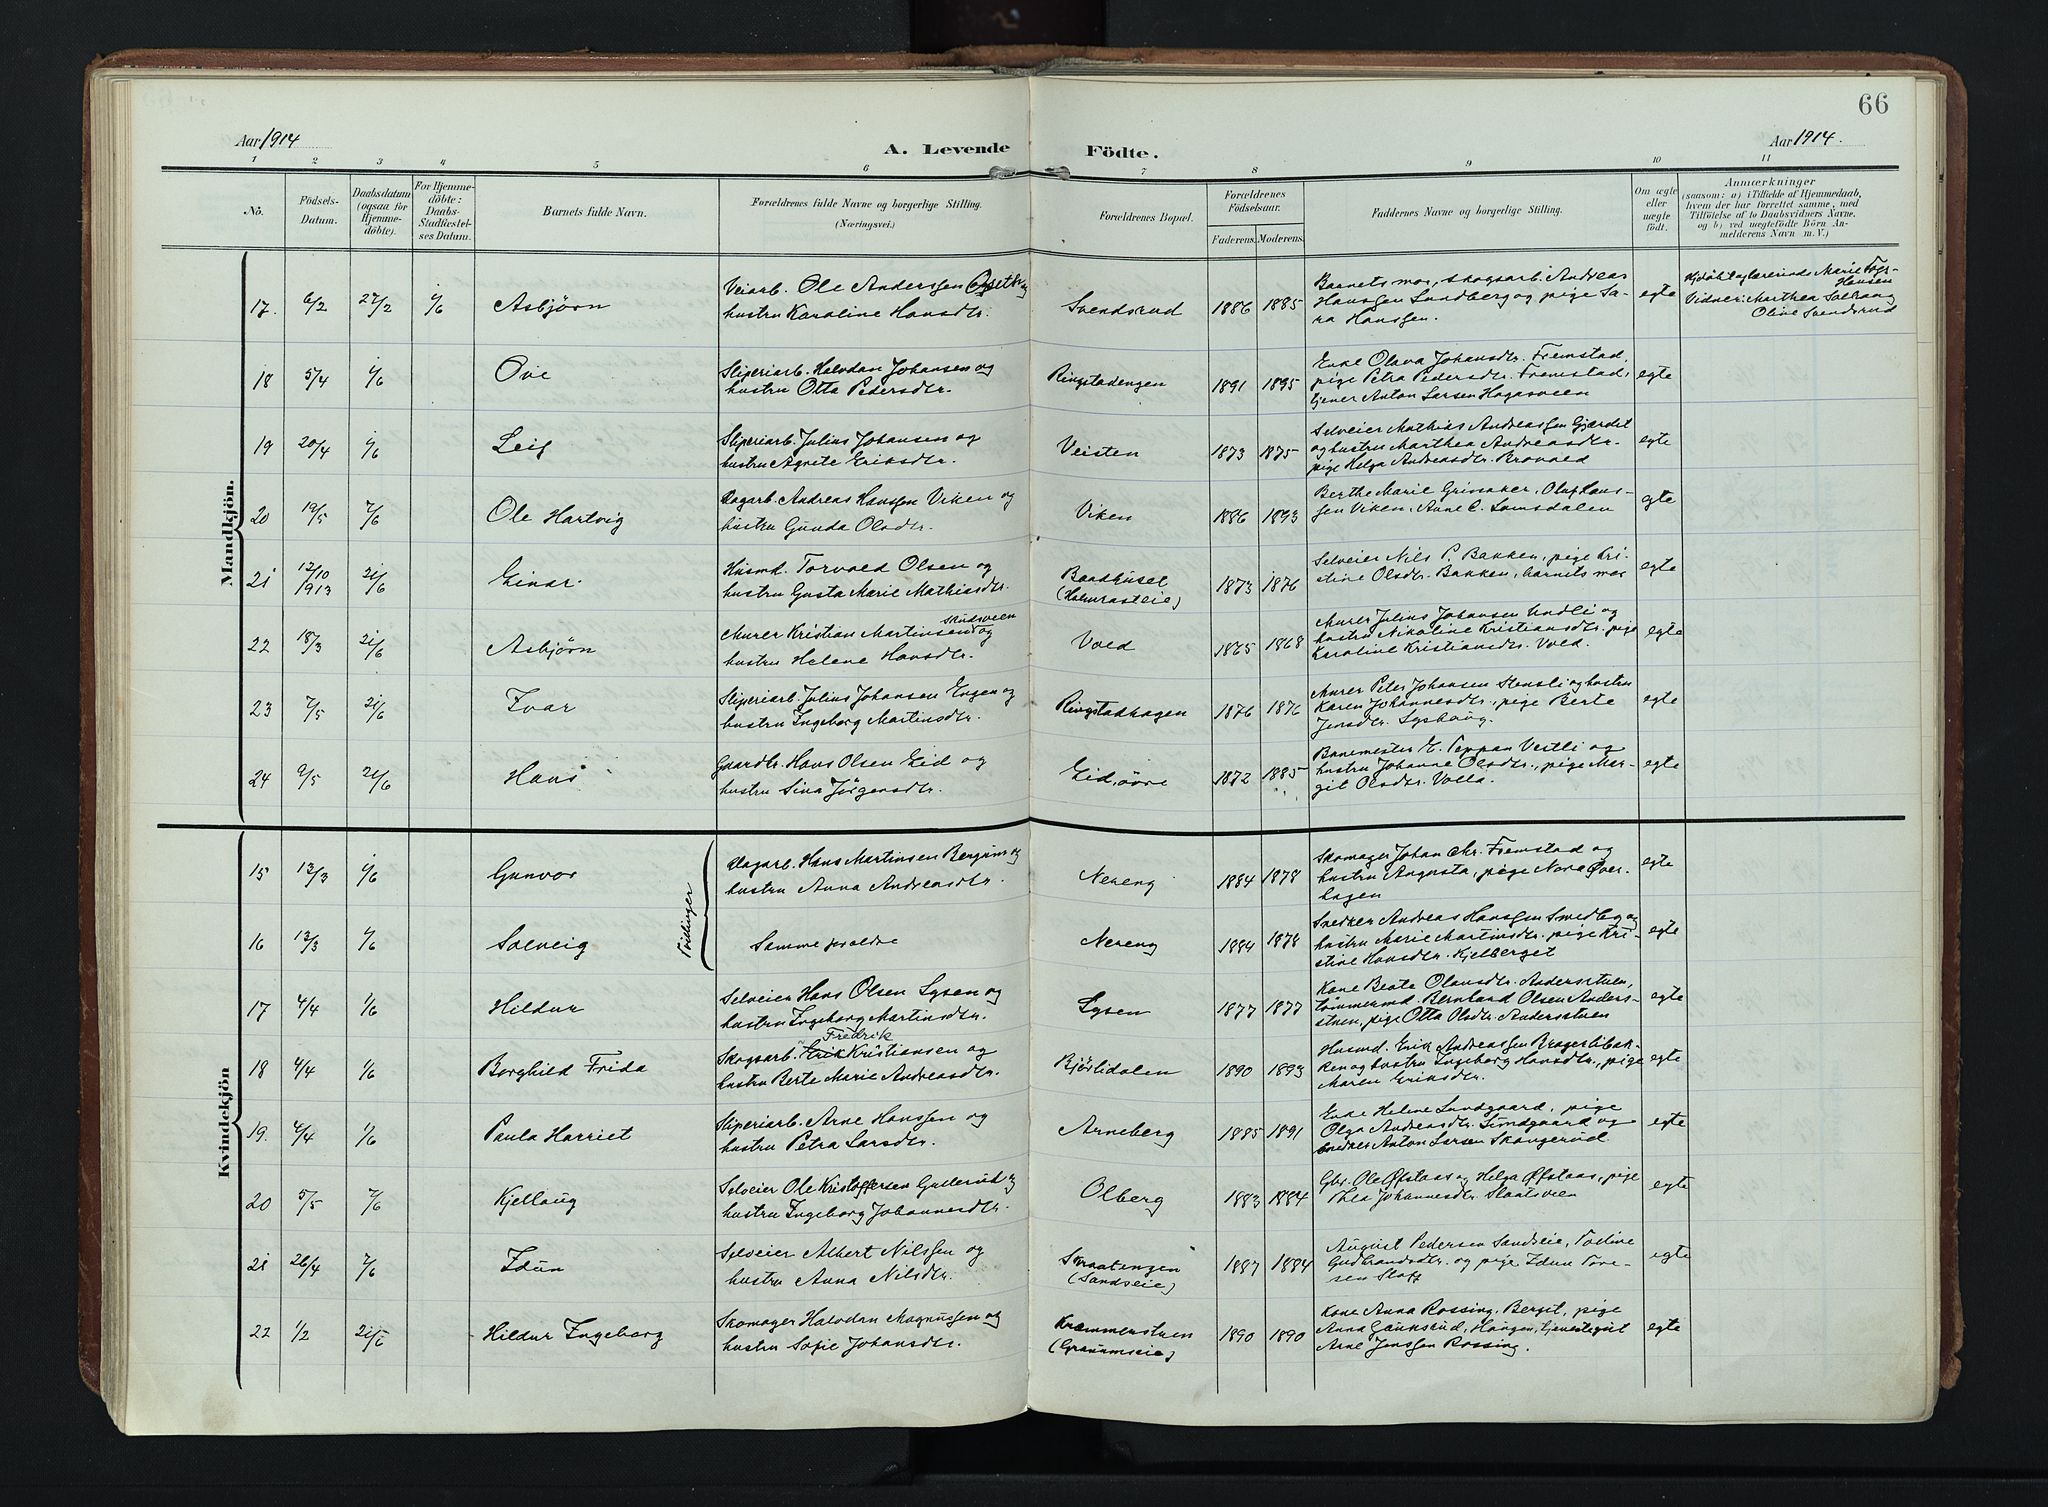 66
Aar 1914
Aar 1914.
A. Levende Födte.
1 2 3 4 5 6 7 8 9 10 11
No.
Födsels-
Datum.
Daabsdatum
(ogsaa for
Hjemme-
döbte).
For Hjemme-
döbte:
Daabs-
Stadfæstel-
ses Datum.
Barnets fulde Navn.
Forældrenes fulde Navne og borgerlige Stilling.
(Næringsvei.)
Forældrenes Bopæl.
Forældrenes
Födselsaar.
Faderens. Moderens.
Faddernes Navne og borgerlige Stilling.
Om ægte
eller
uægte
født.
Anmærkninger
(saasom: a) i Tilfælde af Hjemmedaab,
hvem der har forrettet samme, med
Tilföielse af to Daabsvidners Navne,
og b) ved uægtefödte Börn An-
melderens Navn m. V.)
Mandkjön.
17. 6/2 27/2 1/6 Asbjørn
Veiarb. Ole Andersen
hustru Karoline Hansdtr.
Svendsrud 1886 1885
Barnets mor, skogsarb. Andreas
Hanssen Lundberg og pige Sa-
ra Hanssen.
egte
Marie
Hansen
Vidner: Marthea
Olive Svendsrud
18 5/4 1/6 Ove
Sliperiarb. Halvdan Johansen og
hustru Otta Pedersdtr.
Ringstadengen 1891 1895
Enke Olava Johansdtr. Fremstad,
pige Petra Pedersdtr. Fremstad,
tjener Anton Larsen Hagasveen
egte
19 20/4 1/6 Leif
Sliperiarb. Julius Johansen og
hustru Agnete Eriksdtr.
Veisten 1873 1875
Selveier Mathias Andreassen Gjærdet
og hustru Marthea Andreasdtr.
pige Helga Andreasdtr. Brovold
egte
20 19/5 7/6 Ole Hartvig
Dagarb. Andreas Hanssen Viken og
hustru Gunda Olsdtr.
Viken 1886 1893
Berthe Marie Grinaker, Oluf Hans-
sen Viken, Anne C. Lomsdalen
egte
21 12/10 1913 21/6 Einar
Husmd. Torvald Olsen og
hustru Gusta Marie Mathiasdtr.
Baadhuset
1873 1876
Selveier Nils P. Bakken, pige Kri-
stine Olsdtr. Bakken, barnets mor
egte
22 18/3 21/6 Asbjørn
Skudsveen
Murer Kristian Martinsen og
hustru Helene Hansdtr.
Vold 1865 1868
Murer Julius Johansen Undli og
hustru Nikoline Kristiansdtr. pige
Karoline Kristiansdtr. Vold.
egte
23 7/5 21/6 Ivar
Sliperiarb. Julius Johansen Engen og
hustru Ingeborg Martinsdtr.
Ringstadhagen 1876 1876
Murer Peter Johansen Stensli og hustru
Karen Johannesdtr., pige Berte
Jensdtr. Lyshaug.
egte
24 9/5 21/6 Hans
Gaardbr. Hans Olsen Eid og
hustru Sina Jørgensdtr.
Eid, øvre 1872 1885
Banemester E. Peppan Vestli og
hustru Johanne Olsdtr., pige Mar-
git Olsdtr. Volla.
egte
Kvindekjön
15 13/3 1/6 Gunvor
Tvillinger
Dagarb. Hans Martinsen Bergum og
hustru Anna Andreasdtr.
Nereng 1884 1878
Skomager Johan Chr. Fremstad og
hustru Augusta, pige Nora Øver-
hagen
egte
16 13/3 1/6 Solveig
Samme forældre
Nereng 1884 1878
Snedker Andreas Hanssen Smedby og
hustru Marie Martinsdtr. pige Kri-
stine Hansdtr. Kjelberget
egte
17 4/4 1/6 Hildur
Selveier Hans Olsen Lysen og
hustru Ingeborg Martinsdtr.
Lysen 1877 1877
Kone Beate Olavsdtr. Andersstuen,
tømmermd. Bernhard Olsen Anders-
stuen, pige Otta Olsdtr. Andersstuen
egte
18 4/4 1/6 Borghild Frida
Fredrik
Skogsarb. Erik Kristiansen og
hustru Berte Marie Andreasdtr.
Bjørlidalen 1890 1893
Husmd. Erik Andreassen Bragerlibak-
ken og hustru Ingeborg Hansdtr., pige
Maren Eriksdtr.
egte
19. 4/4 1/6 Paula Harriet
Sliperiarb. Arne Hanssen og
hustru Petra Larsdtr.
Arneberg 1885 1891
Enke Helene Lundgaard, pige
Olga Andreasdtr. Lundgaard og
snedker Anton Larsen Skangerud.
egte
20 5/5 7/6 Kjellaug
Selveier Ole Kristoffersen Gullerud og
hustru Ingeborg Johannesdtr.
Olberg 1883 1884
Gbr. Ole Øfstaas og Helga Øfstaas, pige
Thea Johannesdtr. Slaatsveen
egte
21 26/4 7/6 Idun
Selveier Albert Nilssen og
hustru Anna Nilsdtr.
Skraatengen
(Sandseie)
1887 1884
August Pedersen Sandseie, Todine
Gudbrandsdtr. og pige Idun Tore-
sen Stoff
egte
22 1/2 21/6 Hildur Ingeborg
Skomager Halvdan Magnussen og
hustru Sofie Johansdtr.
Krammerstuen
(Granumseie)
1890 1890
Kone Anna Rossing, Berget, pige
Anna Gauksrud, Haugen, tjenestegut
Arne Jenssen Rossing.
egte